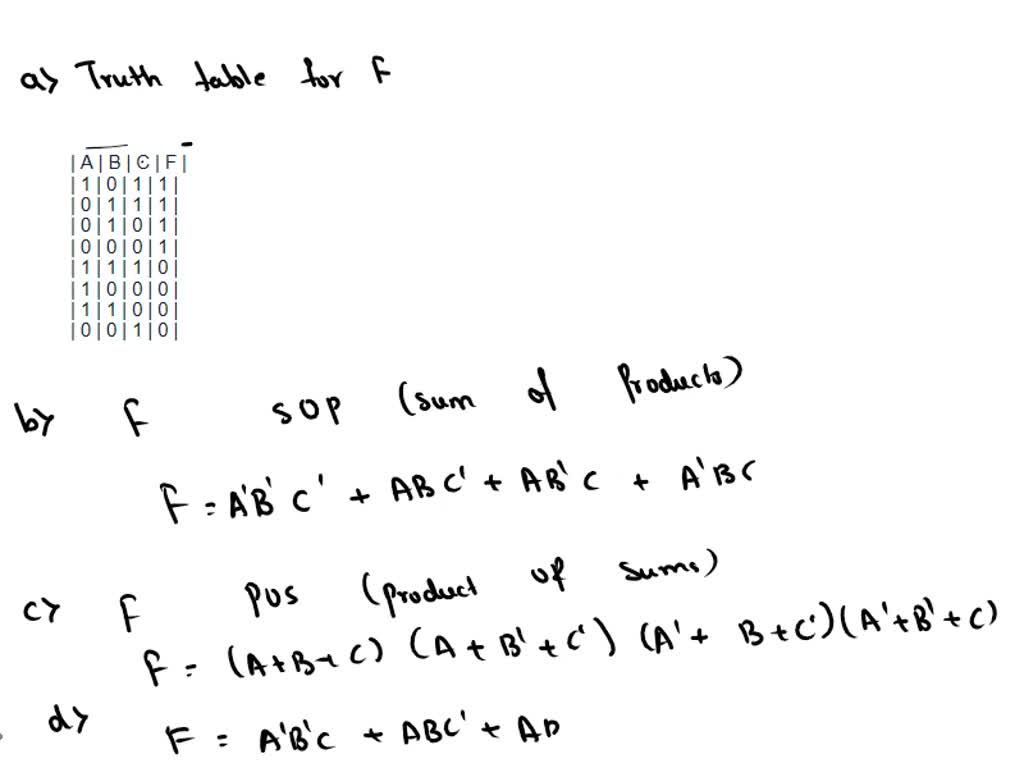 a> Truth table for F
|A|B|C|F|
|1|0|1|1|
|0|1|1|1|
|0|1|0|1|
|0|0|0|1|
|1|1|1|0|
|1|0|0|0|
|1|1|0|0|
|0|0|1|0|
b> F SOP (sum of Products)
F = A'B'C' + ABC' + AB'C + A'BC
c> F POS (product of sums)
F = (A+B+C) (A+B'+C') (A'+B+C') (A'+B'+C)
d> F = A'B'C + ABC' + AB